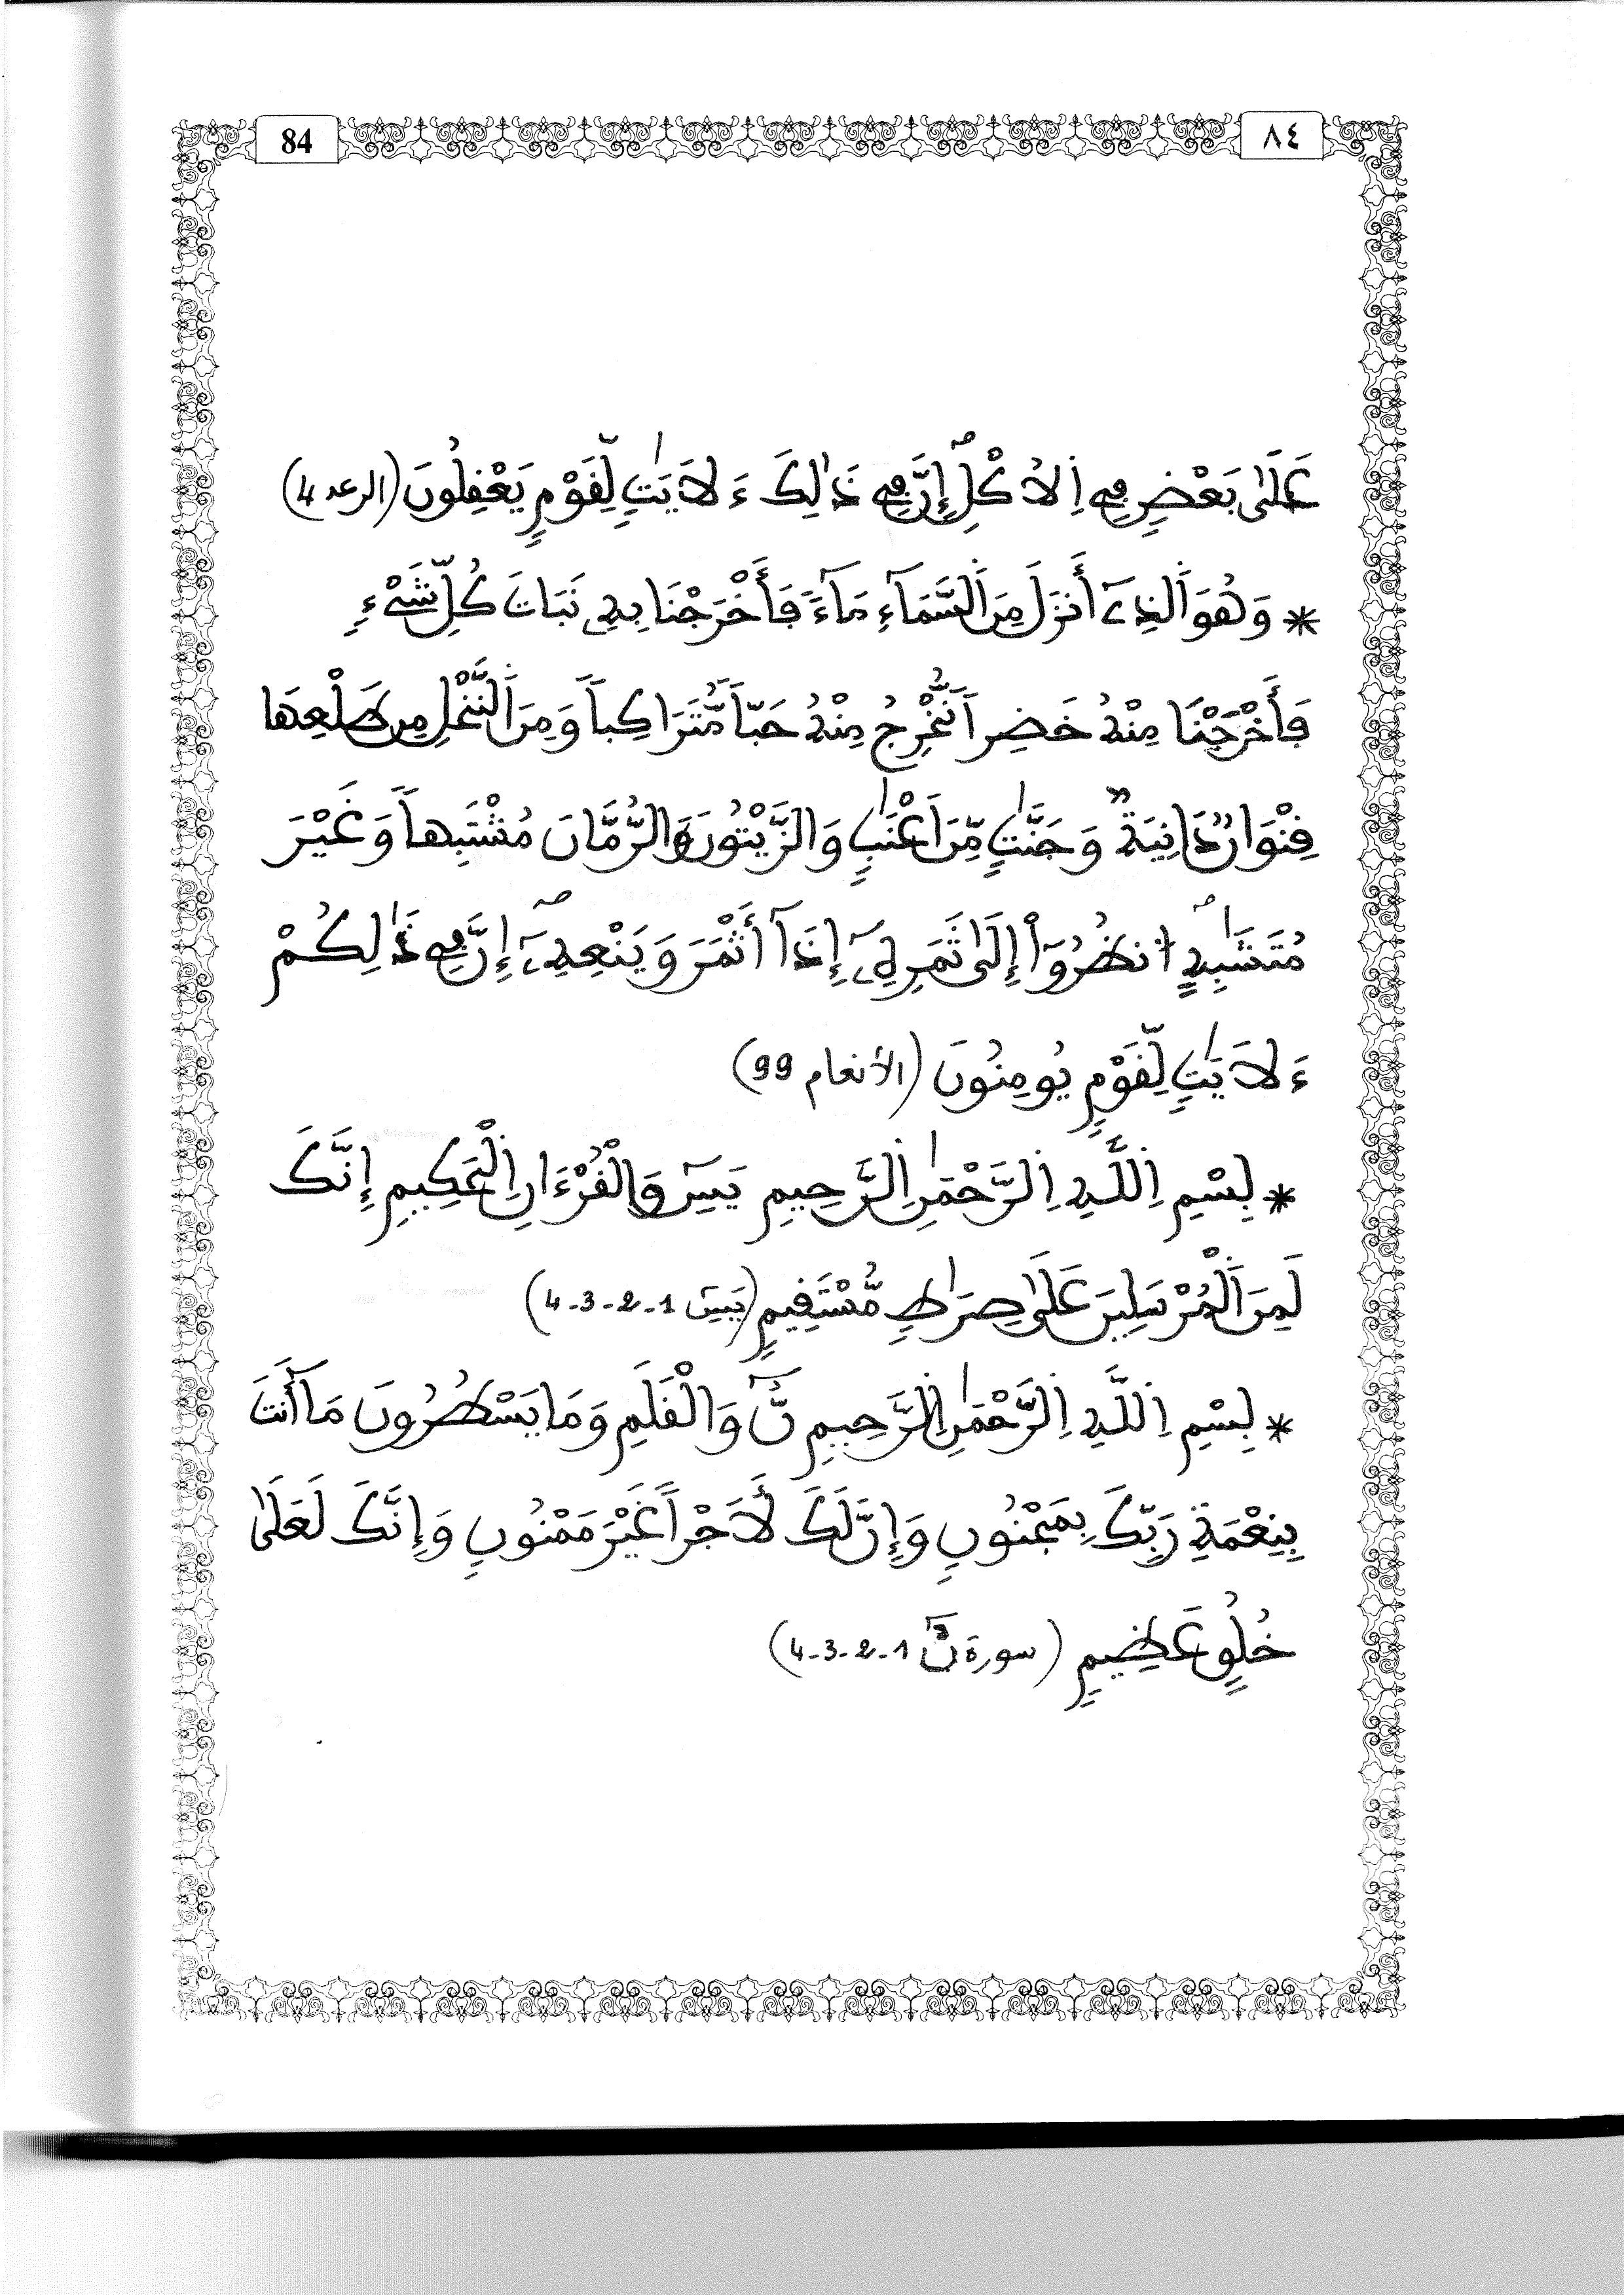 84
٨٤
عَلَىٰ بَعْضٍ فِے اِ۬لُاكْلِ إِنَّ فِے ذَٰلِكَ ءَلَايَٰتٍ لِّقَوْمٍ يَعْقِلُونَ (الرعد 4)
* وَهُوَ اَ۬لذِے أَنزَلَ مِنَ اَ۬لسَّمَآءِ مَآءً فَأَخْرَجْنَا بِهِۦ نَبَاتَ كُلِّ شَےْءٍ
فَأَخْرَجْنَا مِنْهُ خَضِراً نُّخْرِجُ مِنْهُ حَبّاً مُّتَرَاكِباً وَمِنَ اَ۬لنَّخْلِ مِن طَلْعِهَا
قِنْوَانٌ دَانِيَةٌ وَجَنَّٰتٍ مِّنَ اَعْنَٰبٍ وَالزَّيْتُونَ وَالرُّمَّانَ مُشْتَبِهاً وَغَيْرَ
مُتَشَٰبِهٍ اُ۟نظُرُوٓاْ إِلَىٰ ثَمَرِهِۦٓ إِذَآ أَثْمَرَ وَيَنْعِهِۦٓ إِنَّ فِے ذَٰلِكُمْ
ءَلَايَٰتٍ لِّقَوْمٍ يُومِنُونَ (الأنعام 99)
* بِسْمِ اِ۬للَّهِ اِ۬لرَّحْمَٰنِ اِ۬لرَّحِيمِ يَسِٓ وَالْقُرْءَانِ اِ۬لْحَكِيمِ إِنَّكَ
لَمِنَ اَ۬لْمُرْسَلِينَ عَلَىٰ صِرَٰطٍ مُّسْتَقِيمٍ (يَسِٓ 1-2-3-4)
* بِسْمِ اِ۬للَّهِ اِ۬لرَّحْمَٰنِ اِ۬لرَّحِيمِ نَٓ وَالْقَلَمِ وَمَا يَسْطُرُونَ مَا أَنتَ
بِنِعْمَةِ رَبِّكَ بِمَجْنُونٍ وَإِنَّ لَكَ لَأَجْراً غَيْرَ مَمْنُونٍ وَإِنَّكَ لَعَلَىٰ
خُلُقٍ عَظِيمٍ (سورة نٓ 1-2-3-4)